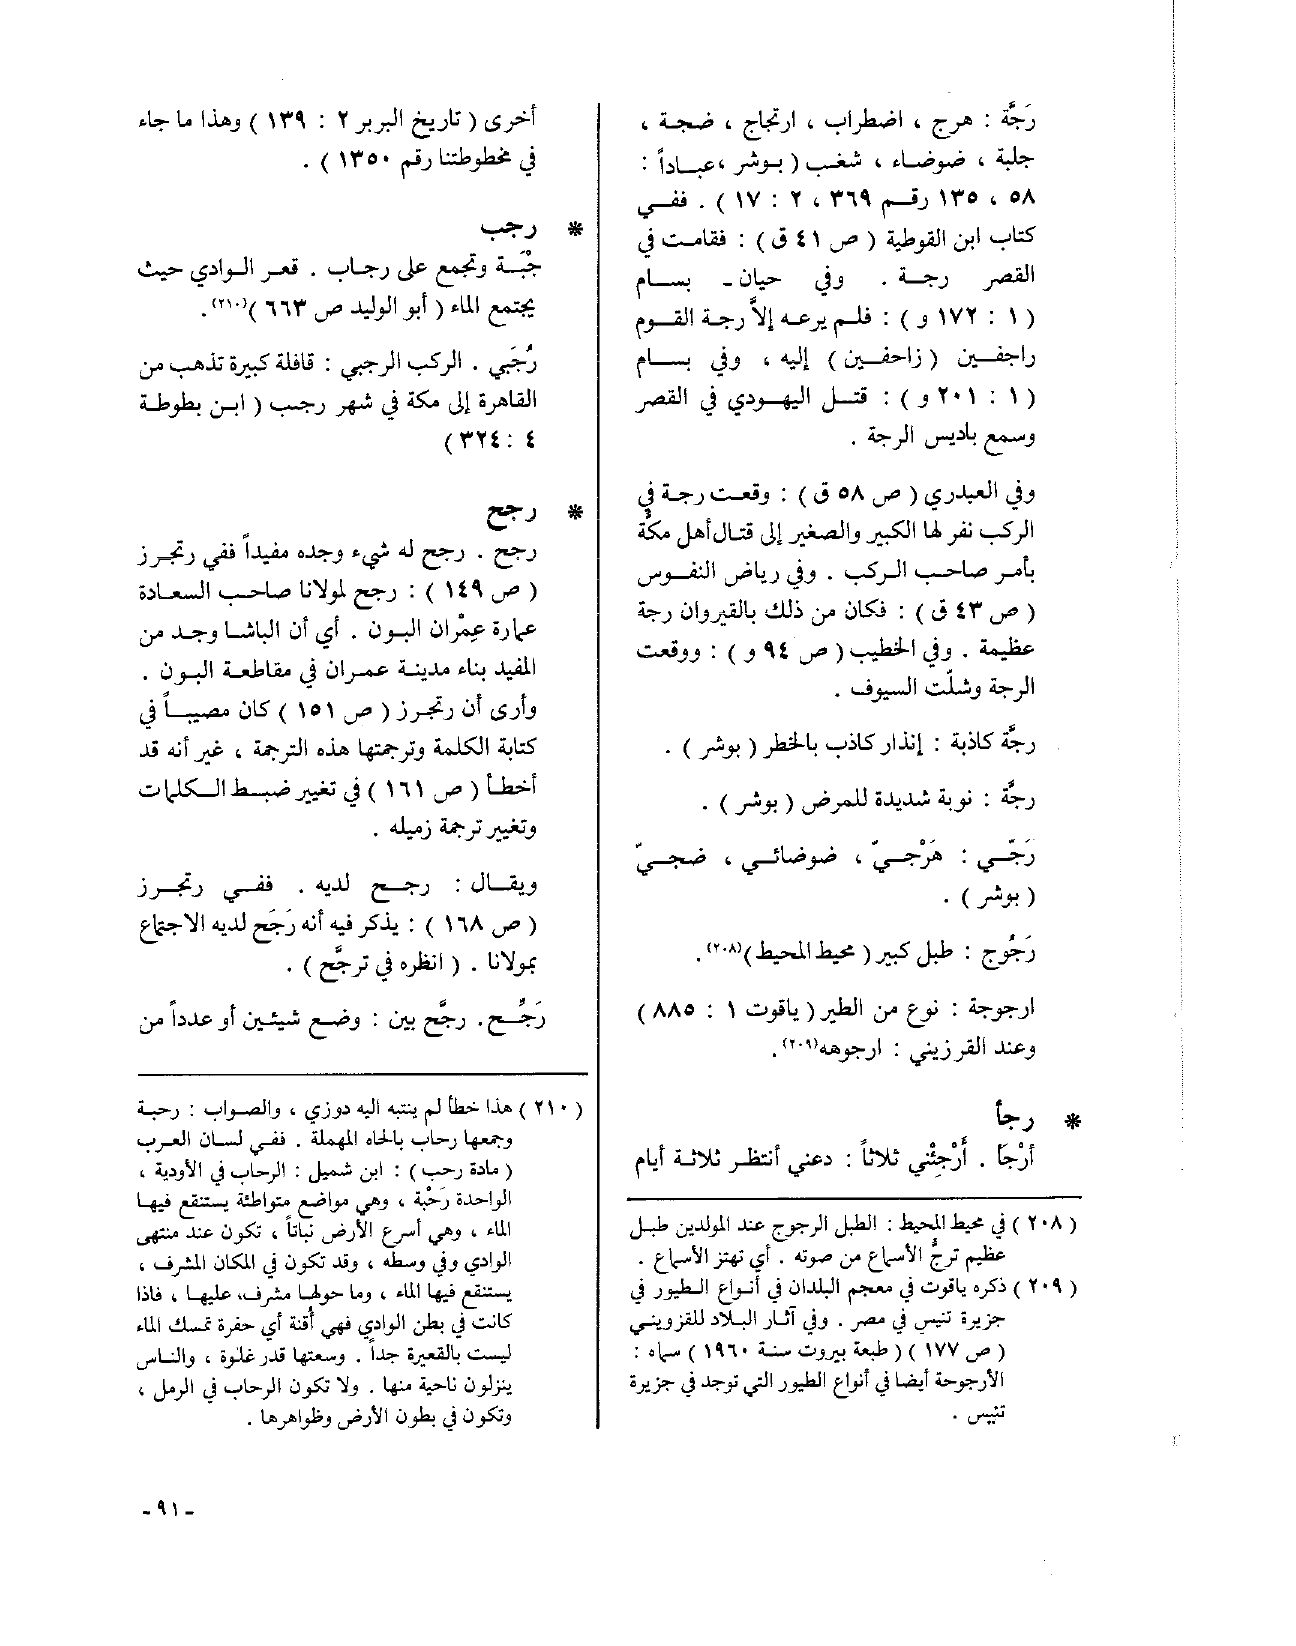 رَجَّة : هرج ، اضطراب ، ارتجاج ، ضجة ،
جلبة ، ضوضاء ، شغب ( بوشر ، عباداً :
٥٨ ، ١٣٥ رقم ٣٦٩ ، ٢ : ١٧ ) . ففي
كتاب ابن القوطية ( ص ٤١ ق ) : فقامت في
القصر رجة . وفي حيان ـ بسام
( ١ : ١٧٢ و ) : فلم يرعه إلاَّ رجة القوم
راجفين ( زاحفين ) إليه ، وفي بسام
( ١ : ٢٠١ و ) : قتل اليهودي في القصر
وسمع باديس الرجة .
وفي العبدري ( ص ٥٨ ق ) : وقعت رجة في
الركب نفر لها الكبير والصغير إلى قتال أهل مكَّة
بأمر صاحب الركب . وفي رياض النفوس
( ص ٤٣ ق ) : فكان من ذلك بالقيروان رجة
عظيمة . وفي الخطيب ( ص ٩٤ و ) : ووقعت
الرجة وسُلَّت السيوف .
رجَّة كاذبة : إنذار كاذب بالخطر ( بوشر ) .
رجَّة : نوبة شديدة للمرض ( بوشر ) .
رَجّي : هَرْجيّ ، ضوضائي ، ضجيّ
( بوشر ) .
رَجُوج : طبل كبير ( محيط المحيط )(٢٠٨).
ارجوجة : نوع من الطير ( ياقوت ١ : ٨٨٥ )
وعند القزويني : ارجوهه(٢٠٩).
* رجأ
أرْجَا . أَرْجِئْني ثلاثاً : دعني أنتظر ثلاثة أيام
( ٢٠٨ ) في محيط المحيط : الطبل الرجوج عند المولدين طبل
عظيم ترجُّ الأسماع من صوته . أي تهتز الأسماع .
( ٢٠٩ ) ذكره ياقوت في معجم البلدان في أنواع الطيور في
جزيرة تنيس في مصر . وفي آثار البلاد للقزويني
( ص ١٧٧ ) ( طبعة بيروت سنة ١٩٦٠ ) سماه :
الأرجوحة أيضا في أنواع الطيور التي توجد في جزيرة
تنيس .
أخرى ( تاريخ البربر ٢ : ١٣٩ ) وهذا ما جاء
في مخطوطتنا رقم ١٣٥٠ ) .
* رجب
رجْبَة وتجمع على رجاب . قعر الوادي حيث
يجتمع الماء ( أبو الوليد ص ٦٦٣ )(٢١٠).
رُجَبي . الركب الرجبي : قافلة كبيرة تذهب من
القاهرة إلى مكة في شهر رجب ( ابن بطوطة
٤ : ٣٢٤ )
* رجح
رجح . رجح له شيء وجده مفيداً ففي رتجرز
( ص ١٤٩ ) : رجح لمولانا صاحب السعادة
عمارة عِمْران البون . أي أن الباشا وجد من
المفيد بناء مدينة عمران في مقاطعة البون .
وأرى أن رتجرز ( ص ١٥١ ) كان مصيباً في
كتابة الكلمة وترجمتها هذه الترجمة ، غير أنه قد
أخطأ ( ص ١٦١ ) في تغيير ضبط الكلمات
وتغيير ترجمة زميله .
ويقال : رجح لديه . ففي رتجرز
( ص ١٦٨ ) : يذكر فيه أنه رَجَح لديه الاجتماع
بمولانا . ( انظره في ترجَّح ) .
رَجَّح . رجَّح بين : وضع شيئين أو عدداً من
( ٢١٠ ) هذا خطأ لم ينتبه اليه دوزي ، والصواب : رحبة
وجمعها رحاب بالحاء المهملة . ففي لسان العرب
( مادة رحب ) : ابن شميل : الرحاب في الأودية ،
الواحدة رَحْبة ، وهي مواضع متواطئة يستنقع فيها
الماء ، وهي أسرع الأرض نباتاً ، تكون عند منتهى
الوادي وفي وسطه ، وقد تكون في المكان المشرف ،
يستنقع فيها الماء ، وما حولها مشرف عليها ، فاذا
كانت في بطن الوادي فهي أقنة أي حفرة تمسك الماء
ليست بالقعيرة جداً . وسعتها قدر غلوة ، والناس
ينزلون ناحية منها . ولا تكون الرحاب في الرمل ،
وتكون في بطون الأرض وظواهرها .
ـ ٩١ ـ